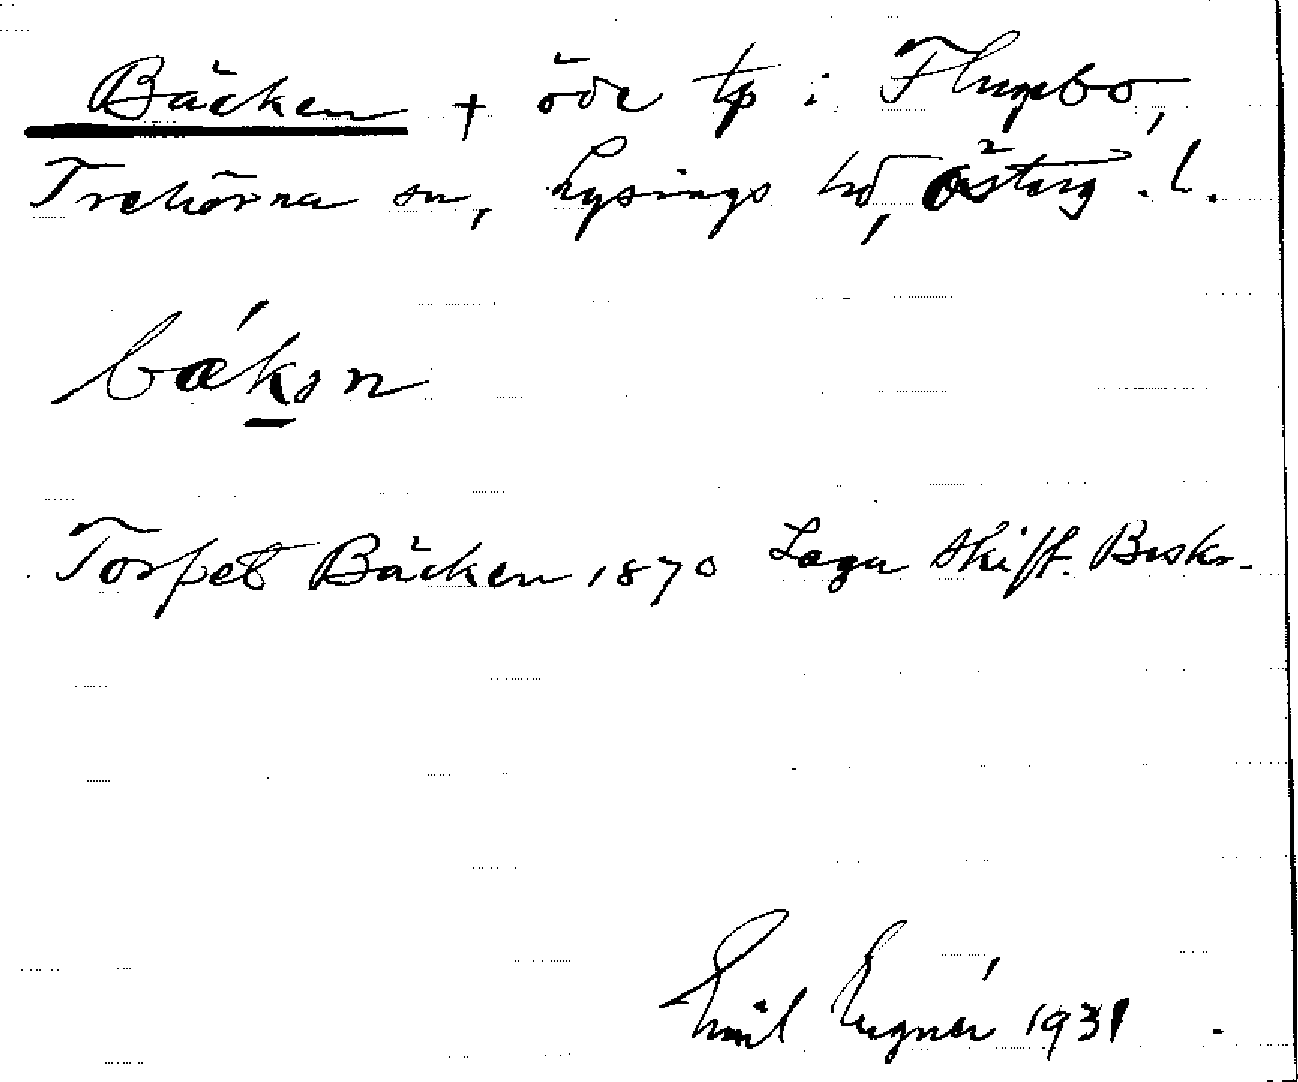 Bäcken + öde tp i Flugebo,
Trehörna sn, Lysings hd, Österg. l.
bǽkən
Torpet Bäcken 1870 Laga Skift. Beskr.
Emil 1931